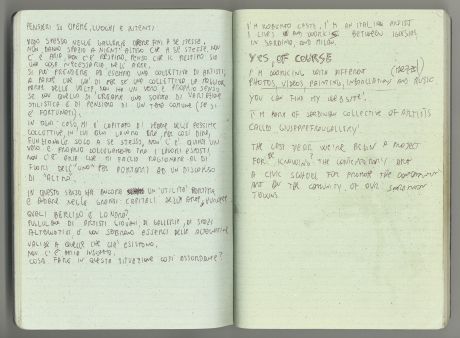 PENSIERI SU OPERE, LUOGHI E INTENTI
VEDO SPESSO NELLE GALLERIE OPERE FINI A SE STESSE,
NON DANNO SPAZIO A NIENT'ALTRO CHE A SE STESSE, NON
C'È ARIA, NON C'È RESPIRO, PENSO CHE IL RESPIRO SIA
UNA COSA NECESSARIA, NELL'ARTE.
SI PUÒ PRENDERE AD ESEMPIO UNA COLLETTIVA DI ARTISTI,
A PARTE CHE GIÀ DI PER SE UNA COLLETTIVA LA MAGGIOR
PARTE DELLE VOLTE, NON HA UN VERO E PROPRIO SENSO
SE NON QUELLO DI CREARE UNA SORTA DI VARIAZIONE
STILISTICA E DI PENSIERO DI UN TEMA COMUNE (SE SI
È FORTUNATI).
IN OGNI CASO, MI È CAPITATO DI VEDERE DELLE PESSIME
COLLETTIVE, IN CUI OGNI LAVORO ERA, PER COSÌ DIRE,
FUNZIONALE SOLO A SE STESSO, NON C'È QUASI UN
VERO E PROPRIO COLLEGAMENTO TRA I LAVORI ESPOSTI
NON C'È ARIA CHE DI FACCIA RAGIONARE AL DI
FUORI DELL'"UNO" PER PORTARTI AD UN DISCORSO
DI "ALTRO".
IN QUESTO SENSO HA ANCORA UN'UTILITÀ
E ANDARE NELLE GRANDI CAPITALI DELL'ARTE EUROPEE
QUALI BERLINO E LONDRA?
PULLULANO DI ARTISTI GIOVANI, DI GALLERIE, DI SPAZI
ALTERNATIVI, E NON SEMBRANO ESSERCI DELLE ALTERNATIVE
VALIDE A QUELLE CHE GIÀ ESISTONO,
NON C'È ARIA INSOMMA,
COSA FARE IN QUESTA SITUAZIONE COSÌ ASSORDANTE?
I'M ROBERTO CASTI, I'M AN ITALIAN ARTIST
I LIVES AND WORK BETWEEN IGLESIAS
IN SARDINIA, AND MILAN,
YES, OF COURSE
I'M WORKING WITH DIFFERENT (MEZZI)
PHOTOS, VIDEOS, PAINTING, INSTALLATION AND MUSIC
YOU CAN FIND MY WEBSITE.
I'M PART OF SARDINIAN COLLECTIVE OF ARTISTS
CALLED GIUSEPPEFRAUGALLERY.
THE LAST YEAR WE'RE BEGIN A PROJECT
FOR KNOWING THE CONTEMPORARY ART
A CIVIC SCHOOL FOR PROMOTE THE CONTEMPORARY
ART ON THE COMUNITY, OF OUR SARDINIAN
TOWNS